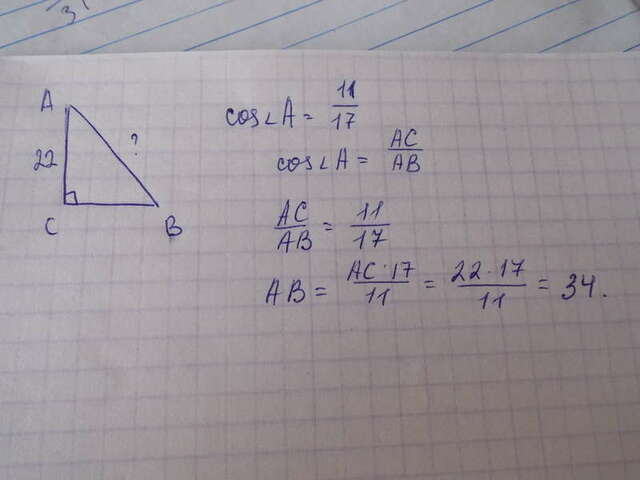 A
22
?
C
B
cos∠A = 11/17
cos∠A = AC/AB
AC/AB = 11/17
AB = AC·17/11 = 22·17/11 = 34.